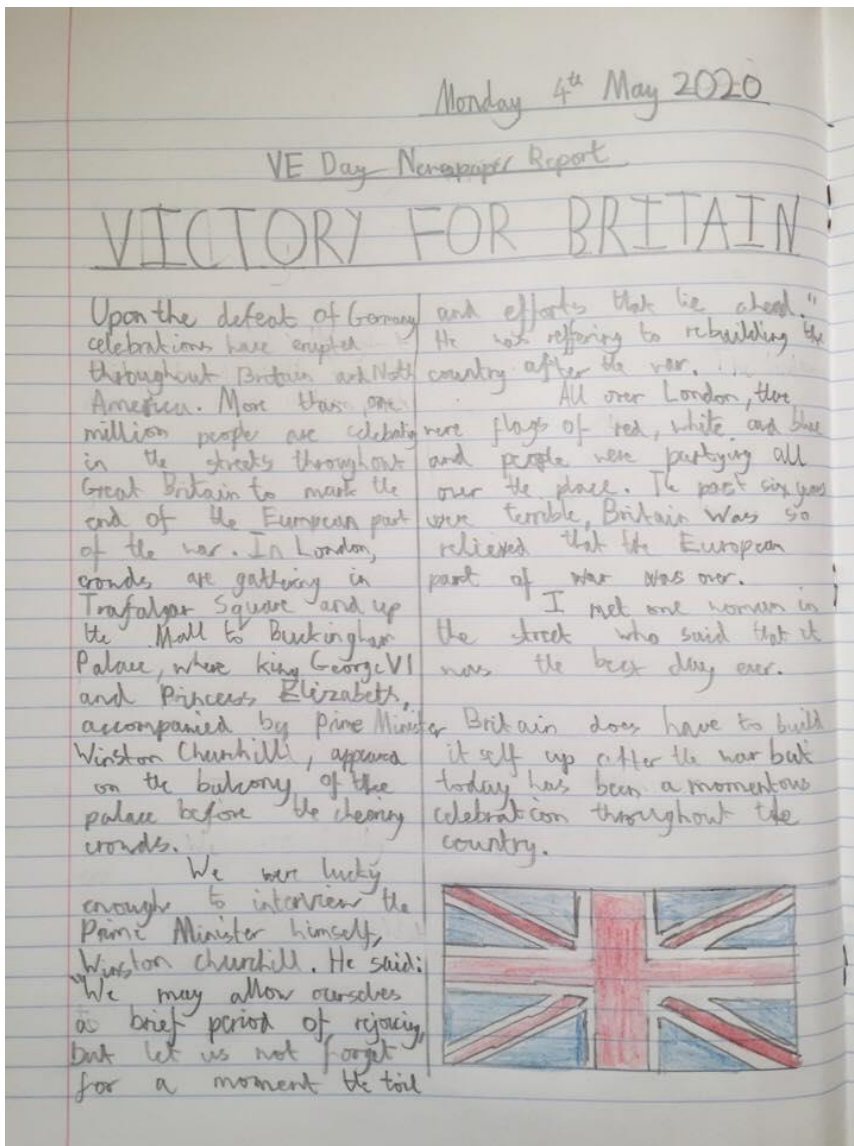 Monday 4th May 2020
VE Day Newspaper Report
VICTORY FOR BRITAIN
Upon the defeat of Germany
celebrations have erupted
throughout Britain and North
America. More than one
million people are celebrating
in the streets throughout
Great Britain to mark the
end of the European part
of the war. In London,
crowds are gathering in
Trafalgar Square and up
the Mall to Buckingham
Palace, where king George VI
and Princess Elizabeth,
accompanied by Prime Minister
Winston Churchill, appeared
on the balcony of the
palace before the cheering
crowds.
We were lucky
enough to interview the
Prime Minister himself,
Winston Churchill. He said:
"We may allow ourselves
a brief period of rejoicing,
but let us not forget
for a moment the toil
and efforts that lie ahead."
He was reffering to rebuilding the
country after the war.
All over London, there
were flags of red, white and blue
and people were partying all
over the place. The past six years
were terrible, Britain was so
relieved that the European
part of war was over.
I met one woman in
the street who said that it
was the best day ever.
Britain does have to build
it self up after the war but
today has been a momentous
celebration throughout the
country.